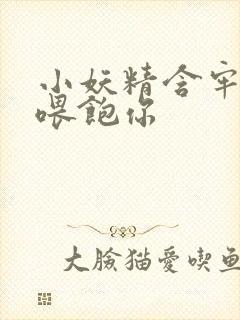 小妖精含牢
喂飽你
大臉猫愛喫鱼